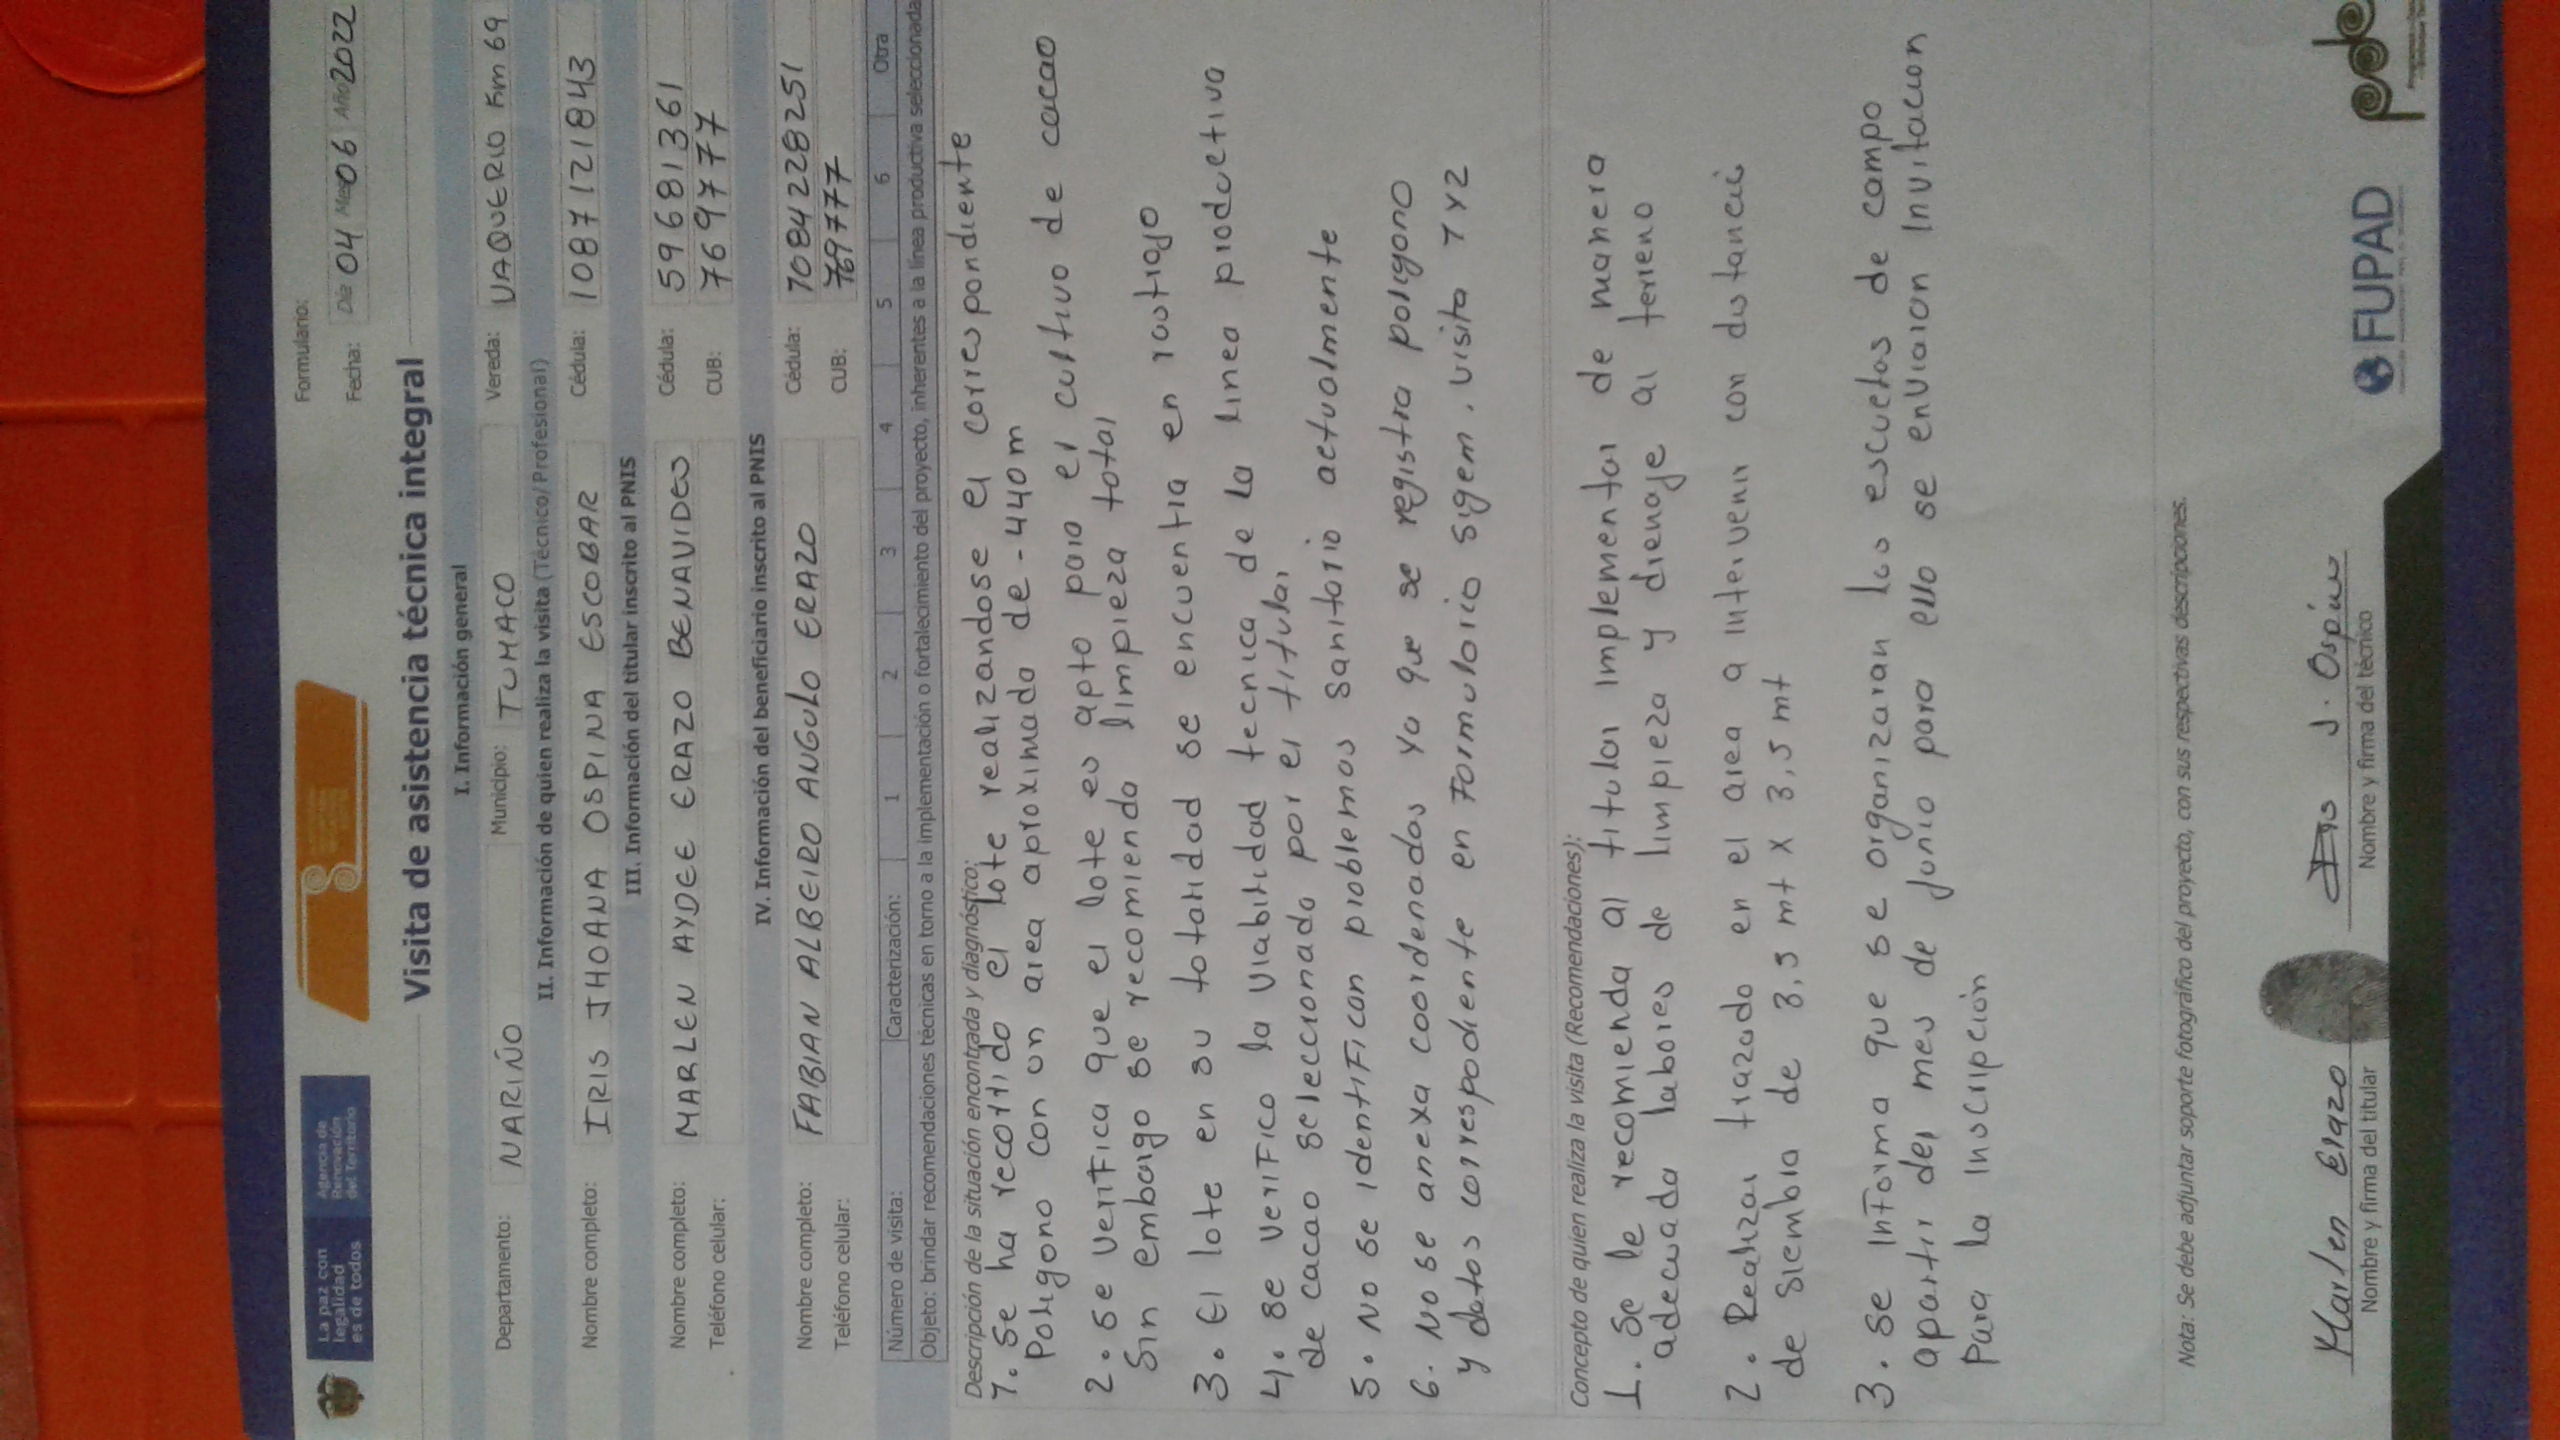 La paz con
legalidad
es de todos
Agencia de
Renovación
del Territorio
Formulario:
Fecha: Día 04 Mes 06 Año 2022
Visita de asistencia técnica integral
I. Información general
Departamento: NARIÑO Municipio: TUMACO Vereda: VAQUERIO Km 69
II. Información de quien realiza la visita (Técnico/Profesional)
Nombre completo: IRIS JHOANA OSPINA ESCOBAR Cédula: 1087121843
III. Información del titular inscrito al PNIS
Nombre completo: MARLEN AYDEE ERAZO BENAVIDES Cédula: 59681361
Teléfono celular: CUB: 769777
IV. Información del beneficiario inscrito al PNIS
Nombre completo: FABIAN ALBEIRO ANGULO ERAZO Cédula: 1084228251
Teléfono celular: CUB: 769777
Número de visita: Caracterización: 1 2 3 4 5 6 Otra
Objeto: brindar recomendaciones técnicas en torno a la implementación o fortalecimiento del proyecto, inherentes a la línea productiva seleccionada
Descripción de la situación encontrada y diagnóstico:
1. Se ha recorrido el lote realizandose el correspondiente
Poligono con un area aproximado de -440m
2. se verifica que el lote es apto para el cultivo de cacao
Sin embargo se recomienda limpieza total
3. El lote en su totalidad se encuentra en rastrojo
4. se verifico la viabilidad tecnica de la linea productiva
de cacao seleccionado por el titular
5. No se identifican problemas sanitario actualmente
6. No se anexa coordenadas ya que se registra poligono
y datos correspodiente en Formulario sigem, visita 1 y 2
Concepto de quien realiza la visita (Recomendaciones):
1. Se le recomienda al titular implementar de manera
adecuada labores de limpieza y drenaje al terreno
2. Realizar trazado en el area a intervenir con distancia
de siembra de 3,5 mt X 3,5 mt
3. se informa que se organizaran las escuelas de campo
apartir del mes de junio para ello se enviaron Invitacion
Para la Inscripción
Nota: Se debe adjuntar soporte fotográfico del proyecto, con sus respectivas descripciones.
Marlen Erazo
Nombre y firma del titular
J. Ospina
Nombre y firma del técnico
FUPAD